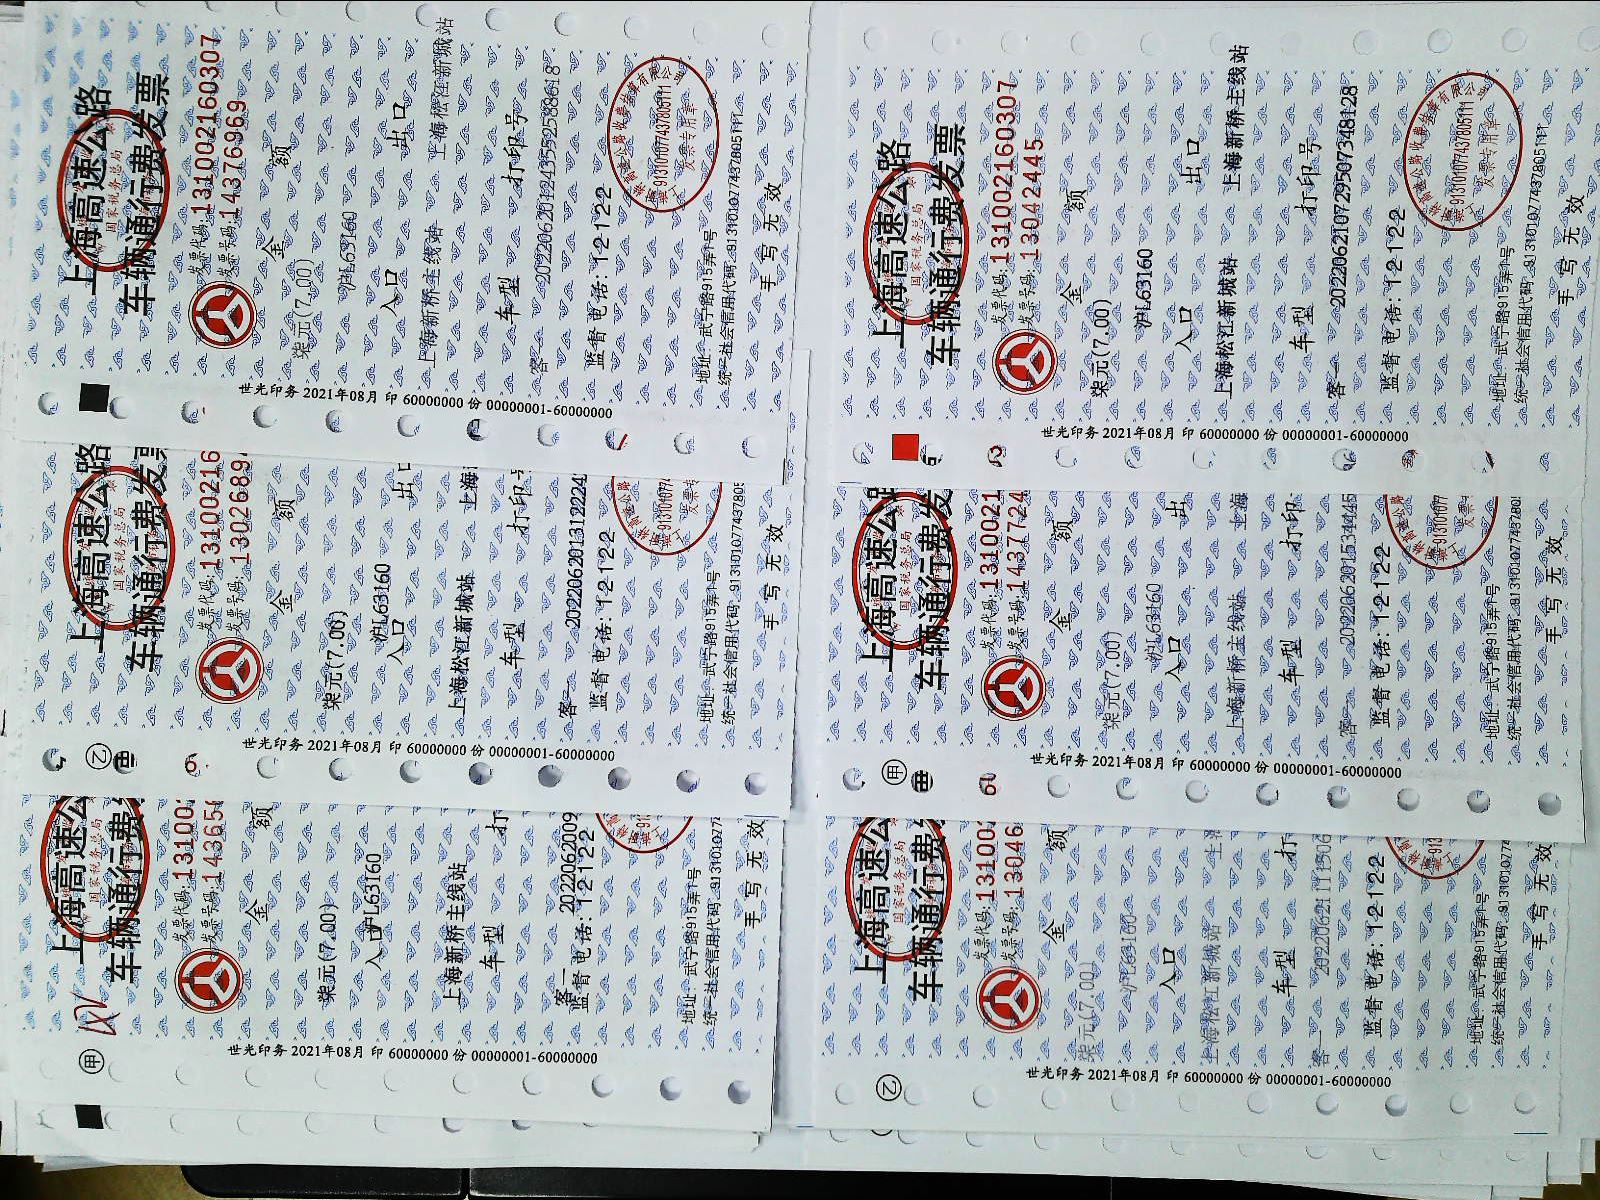 上海高速公路
国家税务总局
车辆通行费发票
发票代码:131002160307
发票号码:14376969
金 额
柒元(7.00)
沪L63160
入口 出口
上海新桥主线站 上海松江新城站
车型 打印号
客一 20220620124352588618
监督电话:12122
地址:武宁路915弄1号
统一社会信用代码:91310107743780511T
手写无效
913101077437805111
发票专用章
世光印务 2021年08月 印 60000000 份 00000001-60000000
上海高速公路
国家税务总局
车辆通行费发票
发票代码:13100216
发票号码:1302689
金 额
柒元(7.00)
沪L63160
入口 出口
上海松江新城站 上海
车型 打印号
客一 2022062013122224
监督电话:12122
地址:武宁路915弄1号
统一社会信用代码:913101077437805
手写无效
世光印务 2021年08月 印 60000000 份 00000001-60000000
乙
上海高速公
国家税务总局
车辆通行费
发票代码:13100
发票号码:14365
金 额
柒元(7.00)
沪L63160
入口
上海新桥主线站
车型 打
客一 2022062009
监督电话:12122
地址:武宁路915弄1号
统一社会信用代码:913101077
手写无效
世光印务 2021年08月 印 60000000 份 00000001-60000000
甲
上海高速公路
国家税务总局
车辆通行费发票
发票代码:131002160307
发票号码:13042445
金 额
柒元(7.00)
沪L63160
入口 出口
上海松江新城站 上海新桥主线站
车型 打印号
客一 20220621072950748128
监督电话:12122
地址:武宁路915弄1号
统一社会信用代码:91310107743780511T
手写无效
913101077437805111
发票专用章
世光印务 2021年08月 印 60000000 份 00000001-60000000
上海高速公路
国家税务总局
车辆通行费发
发票代码:1310021
发票号码:1437724
金 额
柒元(7.00)
沪L63160
入口 出
上海新桥主线站 上海
车型 打印
客一 202206201534445
监督电话:12122
地址:武宁路915弄1号
统一社会信用代码:91310107743780
手写无效
世光印务 2021年08月 印 60000000 份 00000001-60000000
甲
上海高速公
国家税务总局
车辆通行费
发票代码:13100
发票号码:13046
金 额
柒元(7.00)
沪L63160
入口
上海松江新城站 上
车型 打
客一 20220621111506
监督电话:12122
地址:武宁路915弄1号
统一社会信用代码:913101077
手写无效
世光印务 2021年08月 印 60000000 份 00000001-60000000
乙